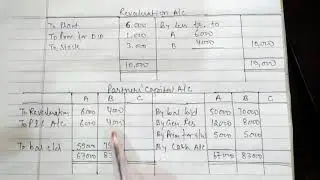 Revaluation A/c
To Plant 6,000 By loss tr. to
To Prov for D/D 1,000 A 6000
To Stock 3,000 B 4000 10,000
10,000 10,000
Partners' Capital A/c
A B C A B C
To Revaluation 6000 4000 By bal b/d 50000 70000
To P&L A/c 6000 4000 By Gen Res 12000 8000
By Prem for G/W 5000 5000
To bal c/d 55000 75 By Cash A/c
67000 83 67000 83000